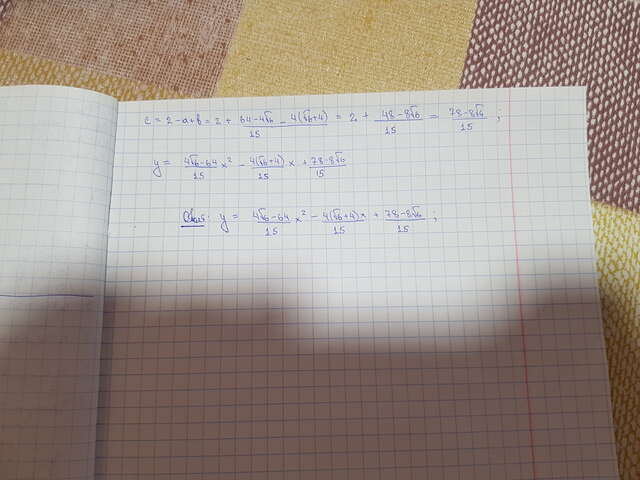 c = 2 - a + b = 2 + (64 - 4√6)/15 - 4(√6+4)/15 = 2 + (48 - 8√6)/15 = (78 - 8√6)/15 ;
y = (4√6 - 64)/15 x² - 4(√6+4)/15 x + (78 - 8√6)/15
Ответ: y = (4√6 - 64)/15 x² - 4(√6+4)x/15 + (78 - 8√6)/15 ;